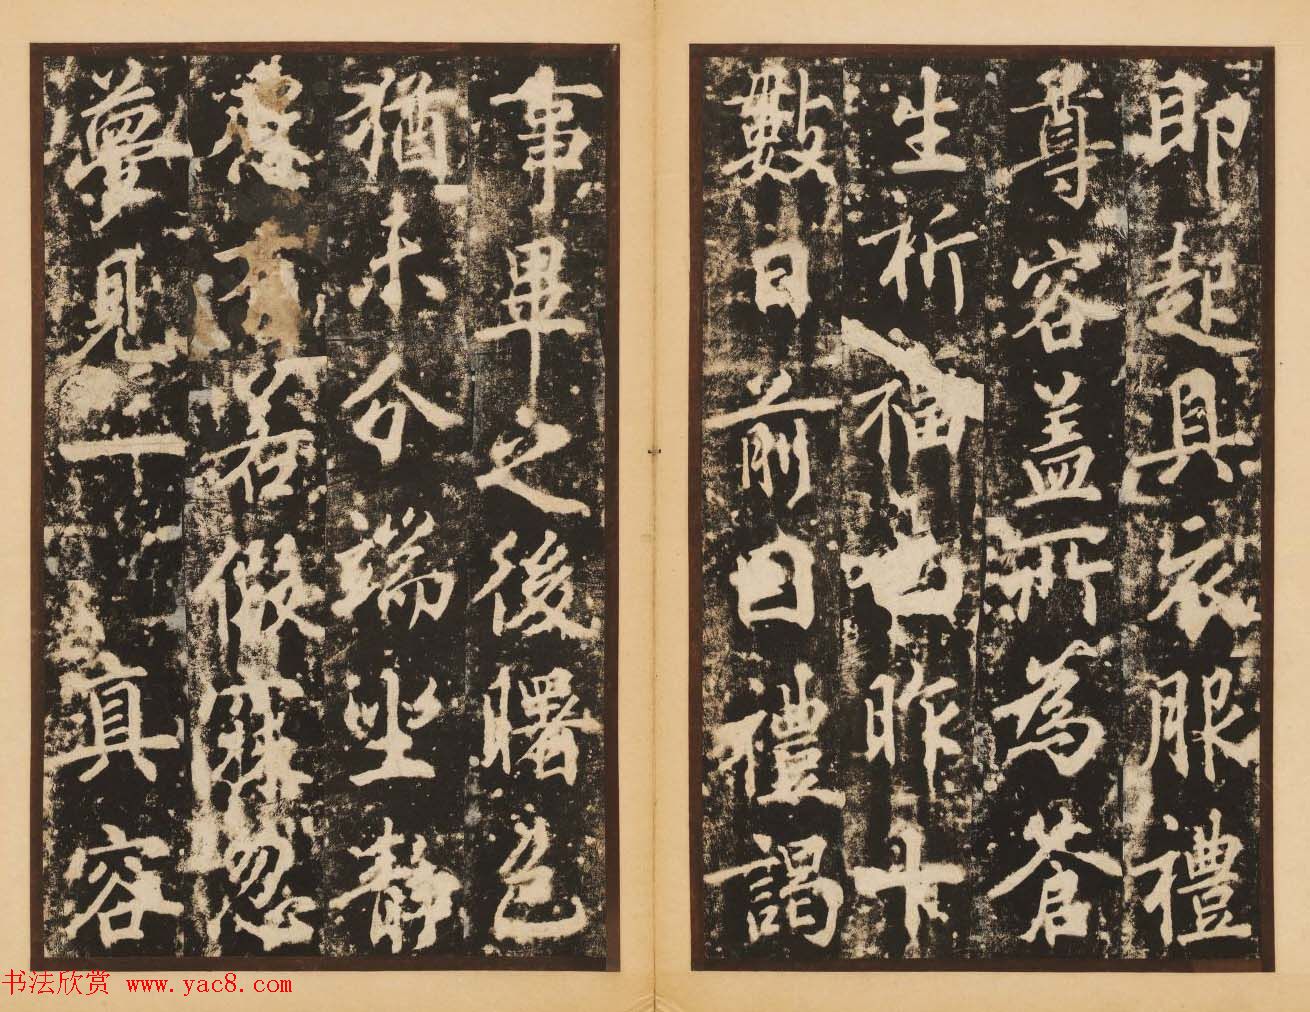 即起具衣服禮
尊容蓋所為蒼
生祈福也昨十
數日前因禮謁
事畢之後曙色
猶未分端坐靜
慮有若假寐忽
夢見一真容
书法欣赏 www.yac8.com